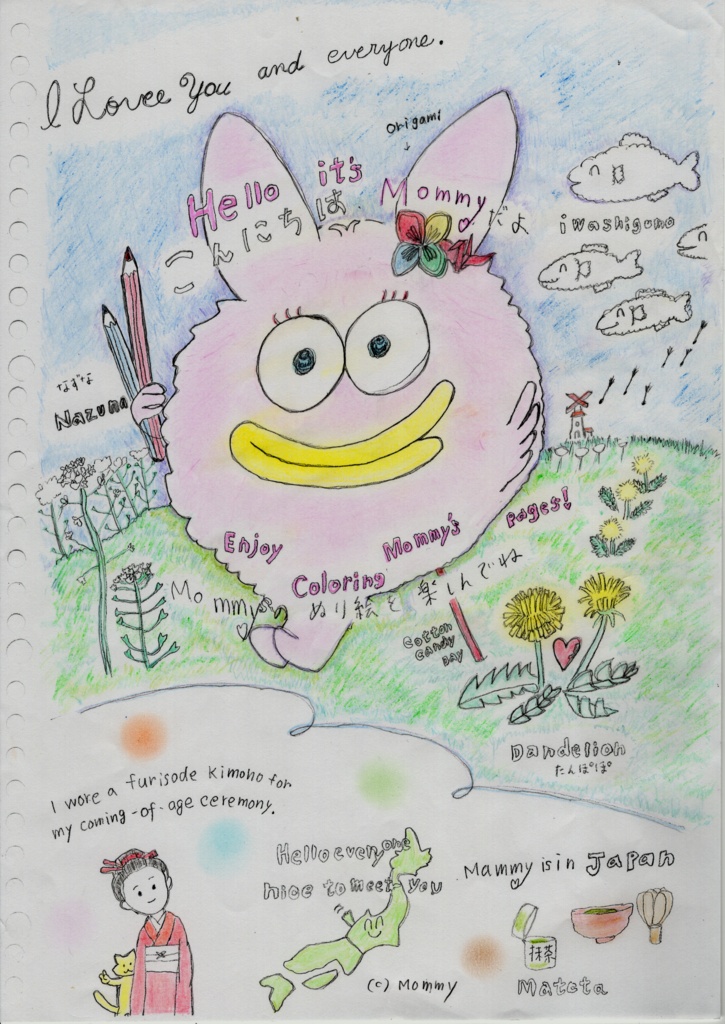 I Lovee You and everyone.
origami
Hello it's Mommy
こんにちは だよ
iwashigumo
なずな
Nazuna
Enjoy Mommy's pages!
Coloring
Mommy's ぬり絵を楽しんでね
Cotton
Candy
Day
Dandelion
たんぽぽ
I wore a furisode kimono for
my coming-of-age ceremony.
Hello everyone
nice to meet you
Mammy is in Japan
抹茶
(c) Mommy
Matcta